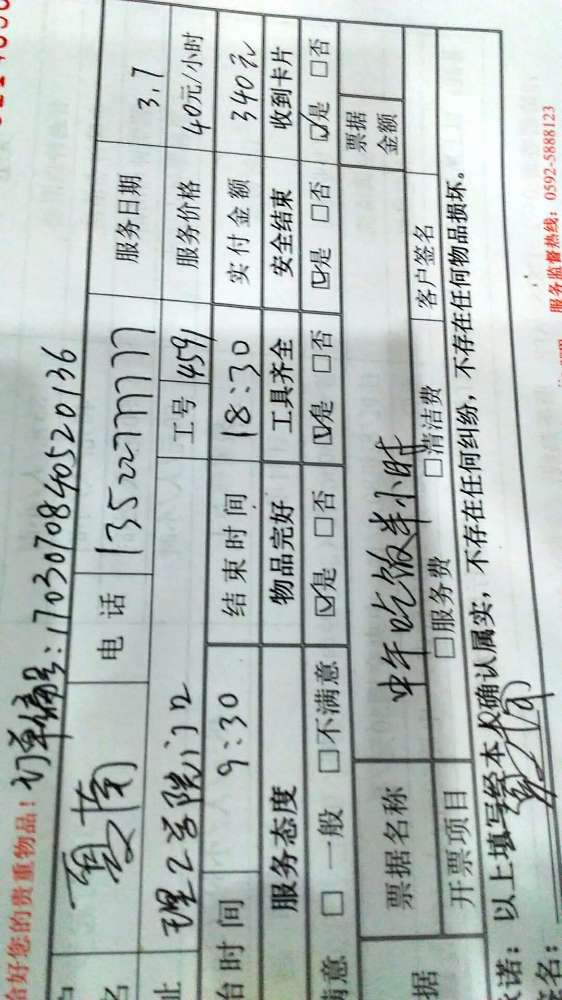 您的贵重物品！ 订单编号：1703070840520136
夏楠 电话 服务日期 3.7
址 理工学院门口 工号 4591 服务价格 40元/小时
时间 9:30 结束时间 18:30 实付金额 340元
服务态度 物品完好 工具齐全 安全结束 收到卡片
满意 □一般 □不满意 ☑是 □否 ☑是 □否 ☑是 □否 ☑是 □否
据 票据名称 中午吃饭半小时 票据金额
开票项目 □服务费 □清洁费 客户签名
诺：以上填写经本人确认属实，不存在任何纠纷，不存在任何物品损坏。
签名： 夏楠 服务监督热线：0592-5888123